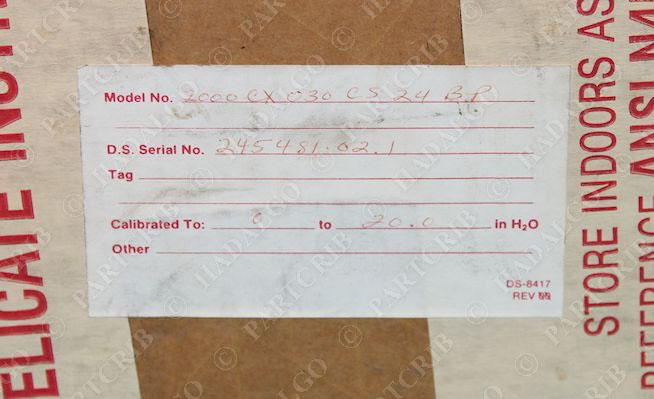 Model No. 2000 CX 030 CS 24 B.P
D.S. Serial No. 245481.02.1
Tag
Calibrated To: 0 to 20.0 in H₂O
Other
DS-8417
REV 00
ELICATE INSTR
STORE INDOORS AS
REFERENCE ANSI N4
PARTCRIB
HADALGO